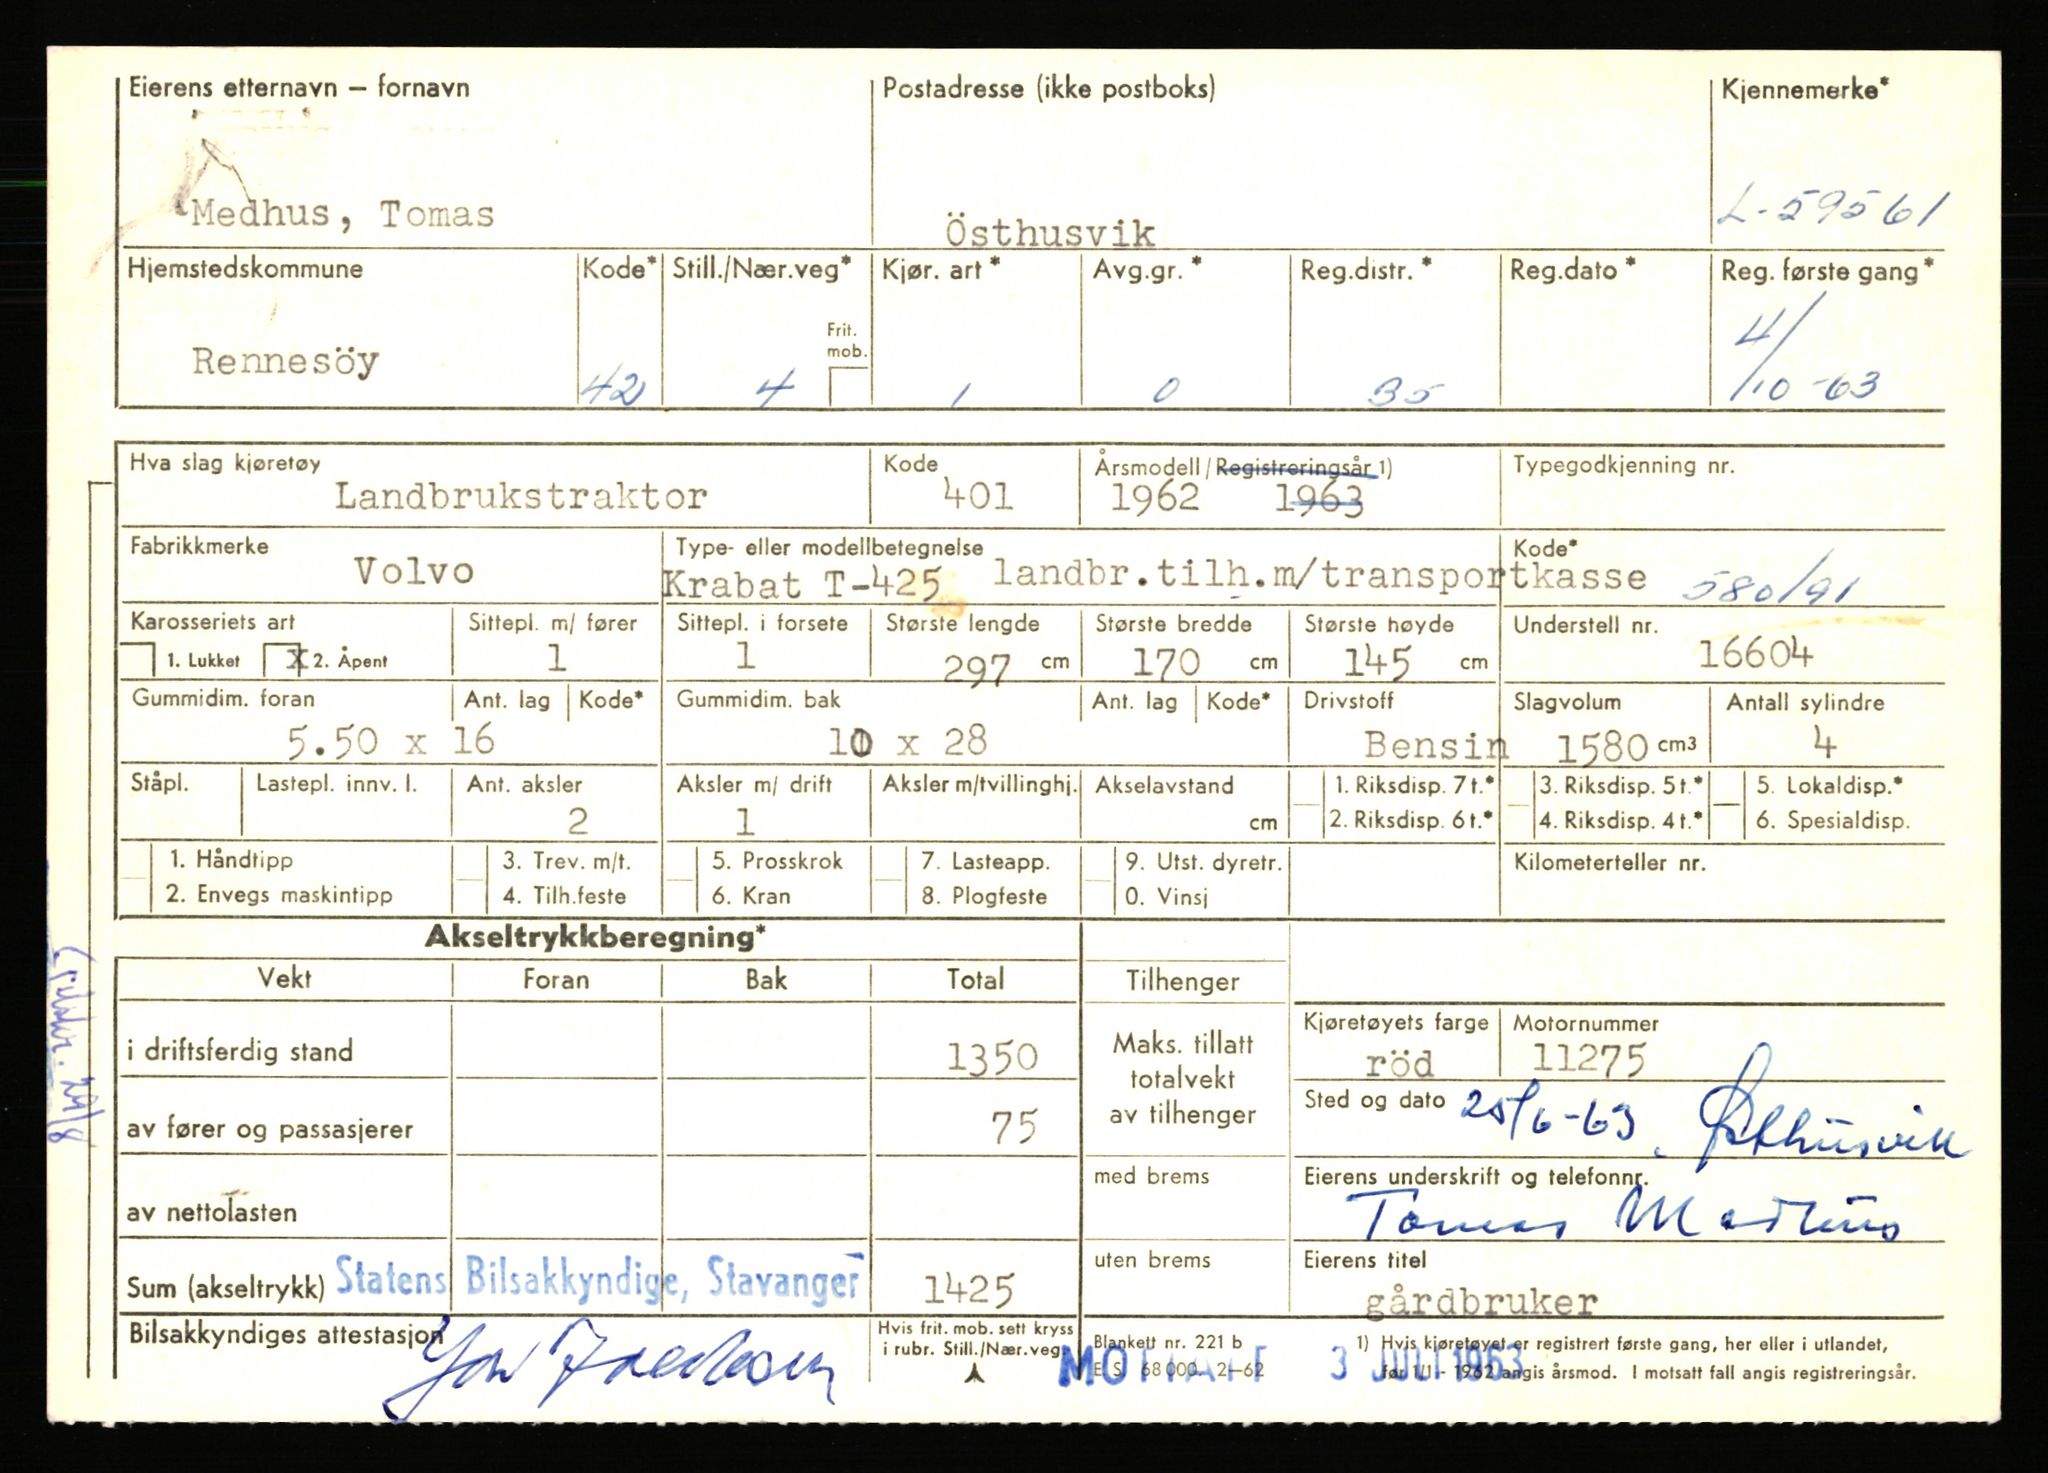 Eierens etternavn — fornavn Postadresse (ikke postboks) Kjennemerke*
Medhus, Tomas Östhusvik L-59561
Hjemstedskommune Kode* Still./Nær.veg* Kjør. art * Avg.gr. * Reg.distr. * Reg.dato * Reg. første gang*
Frit. mob.
Rennesöy 42 4 1 0 35 4/10-63
Hva slag kjøretøy Kode Årsmodell / Registreringsår 1) Typegodkjenning nr.
Landbrukstraktor 401 1962 1963
Fabrikkmerke Type- eller modellbetegnelse Kode*
Volvo Krabat T-425 landbr.tilh.m/transportkasse 580/91
Karosseriets art Sittepl. m/ fører Sittepl. i forsete Største lengde Største bredde Største høyde Understell nr.
1. Lukket X 2. Åpent 1 1 297 cm 170 cm 145 cm 16604
Gummidim. foran Ant. lag Kode* Gummidim. bak Ant. lag Kode* Drivstoff Slagvolum Antall sylindre
5.50 x 16 10 x 28 Bensin 1580 cm3 4
Ståpl. Lastepl. innv. l. Ant. aksler Aksler m/ drift Aksler m/tvillinghj. Akselavstand 1. Riksdisp. 7 t.* 3. Riksdisp. 5 t.* 5. Lokaldisp.*
2 1 cm 2. Riksdisp. 6 t.* 4. Riksdisp. 4 t.* 6. Spesialdisp.
1. Håndtipp 3. Trev. m/t. 5. Prosskrok 7. Lasteapp. 9. Utst. dyretr. Kilometerteller nr.
2. Envegs maskintipp 4. Tilh.feste 6. Kran 8. Plogfeste 0. Vinsj
Akseltrykkberegning*
Vekt Foran Bak Total Tilhenger
i driftsferdig stand 1350
Maks. tillatt
totalvekt
av tilhenger
Kjøretøyets farge Motornummer
röd 11275
av fører og passasjerer 75
Sted og dato 25/6-63, Østhusvik
av nettolasten
med brems
Eierens underskrift og telefonnr.
Tomas Medhus
Sum (akseltrykk) Statens Bilsakkyndige, Stavanger 1425
uten brems
Eierens titel
gårdbruker
Bilsakkyndiges attestasjon
Hvis frit. mob. sett kryss
i rubr. Still./Nær.veg.
Blankett nr. 221 b
E. S. 68 000. 2—62
MOTTATT 3 JULI 1963
1) Hvis kjøretøyet er registrert første gang, her eller i utlandet,
før 1/1 - 1962 angis årsmod. I motsatt fall angis registreringsår.
29/8